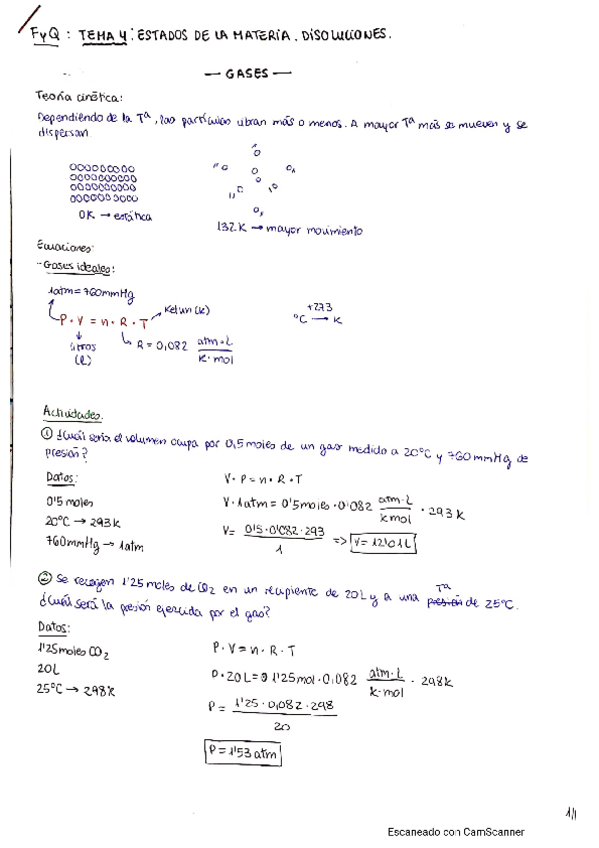 FyQ: TEMA 4: ESTADOS DE LA MATERIA. DISOLUCIONES.
— GASES —
Teoría cinética:
Dependiendo de la Tª, las partículas vibran más o menos. A mayor Tª más se mueven y se
dispersan
0K → estática
132K → mayor movimiento
Ecuaciones:
- Gases ideales:
1atm = 760mmHg
Kelvin (K)
P · V = n · R · T
+273
°C → K
litros
(L)
R = 0,082 atm·L / K·mol
Actividades:
① ¿Cuál sería el volumen ocupa por 0,5 moles de un gas medido a 20°C y 760 mmHg de
presión?
Datos:
0'5 moles
20°C → 293K
760mmHg → 1atm
V · P = n · R · T
V · 1atm = 0'5 moles · 0'082 atm·L / K·mol · 293K
V = 0'5 · 0'082 · 293 / 1 => V = 12'01L
② Se recogen 1'25 moles de CO₂ en un recipiente de 20L y a una presión Tª de 25°C.
¿Cuál será la presión ejercida por el gas?
Datos:
1'25 moles CO₂
20L
25°C → 298K
P · V = n · R · T
P · 20L = 1'25mol · 0,082 atm·L / K·mol · 298K
P = 1'25 · 0,082 · 298 / 20
P = 1'53 atm
1/1
Escaneado con CamScanner